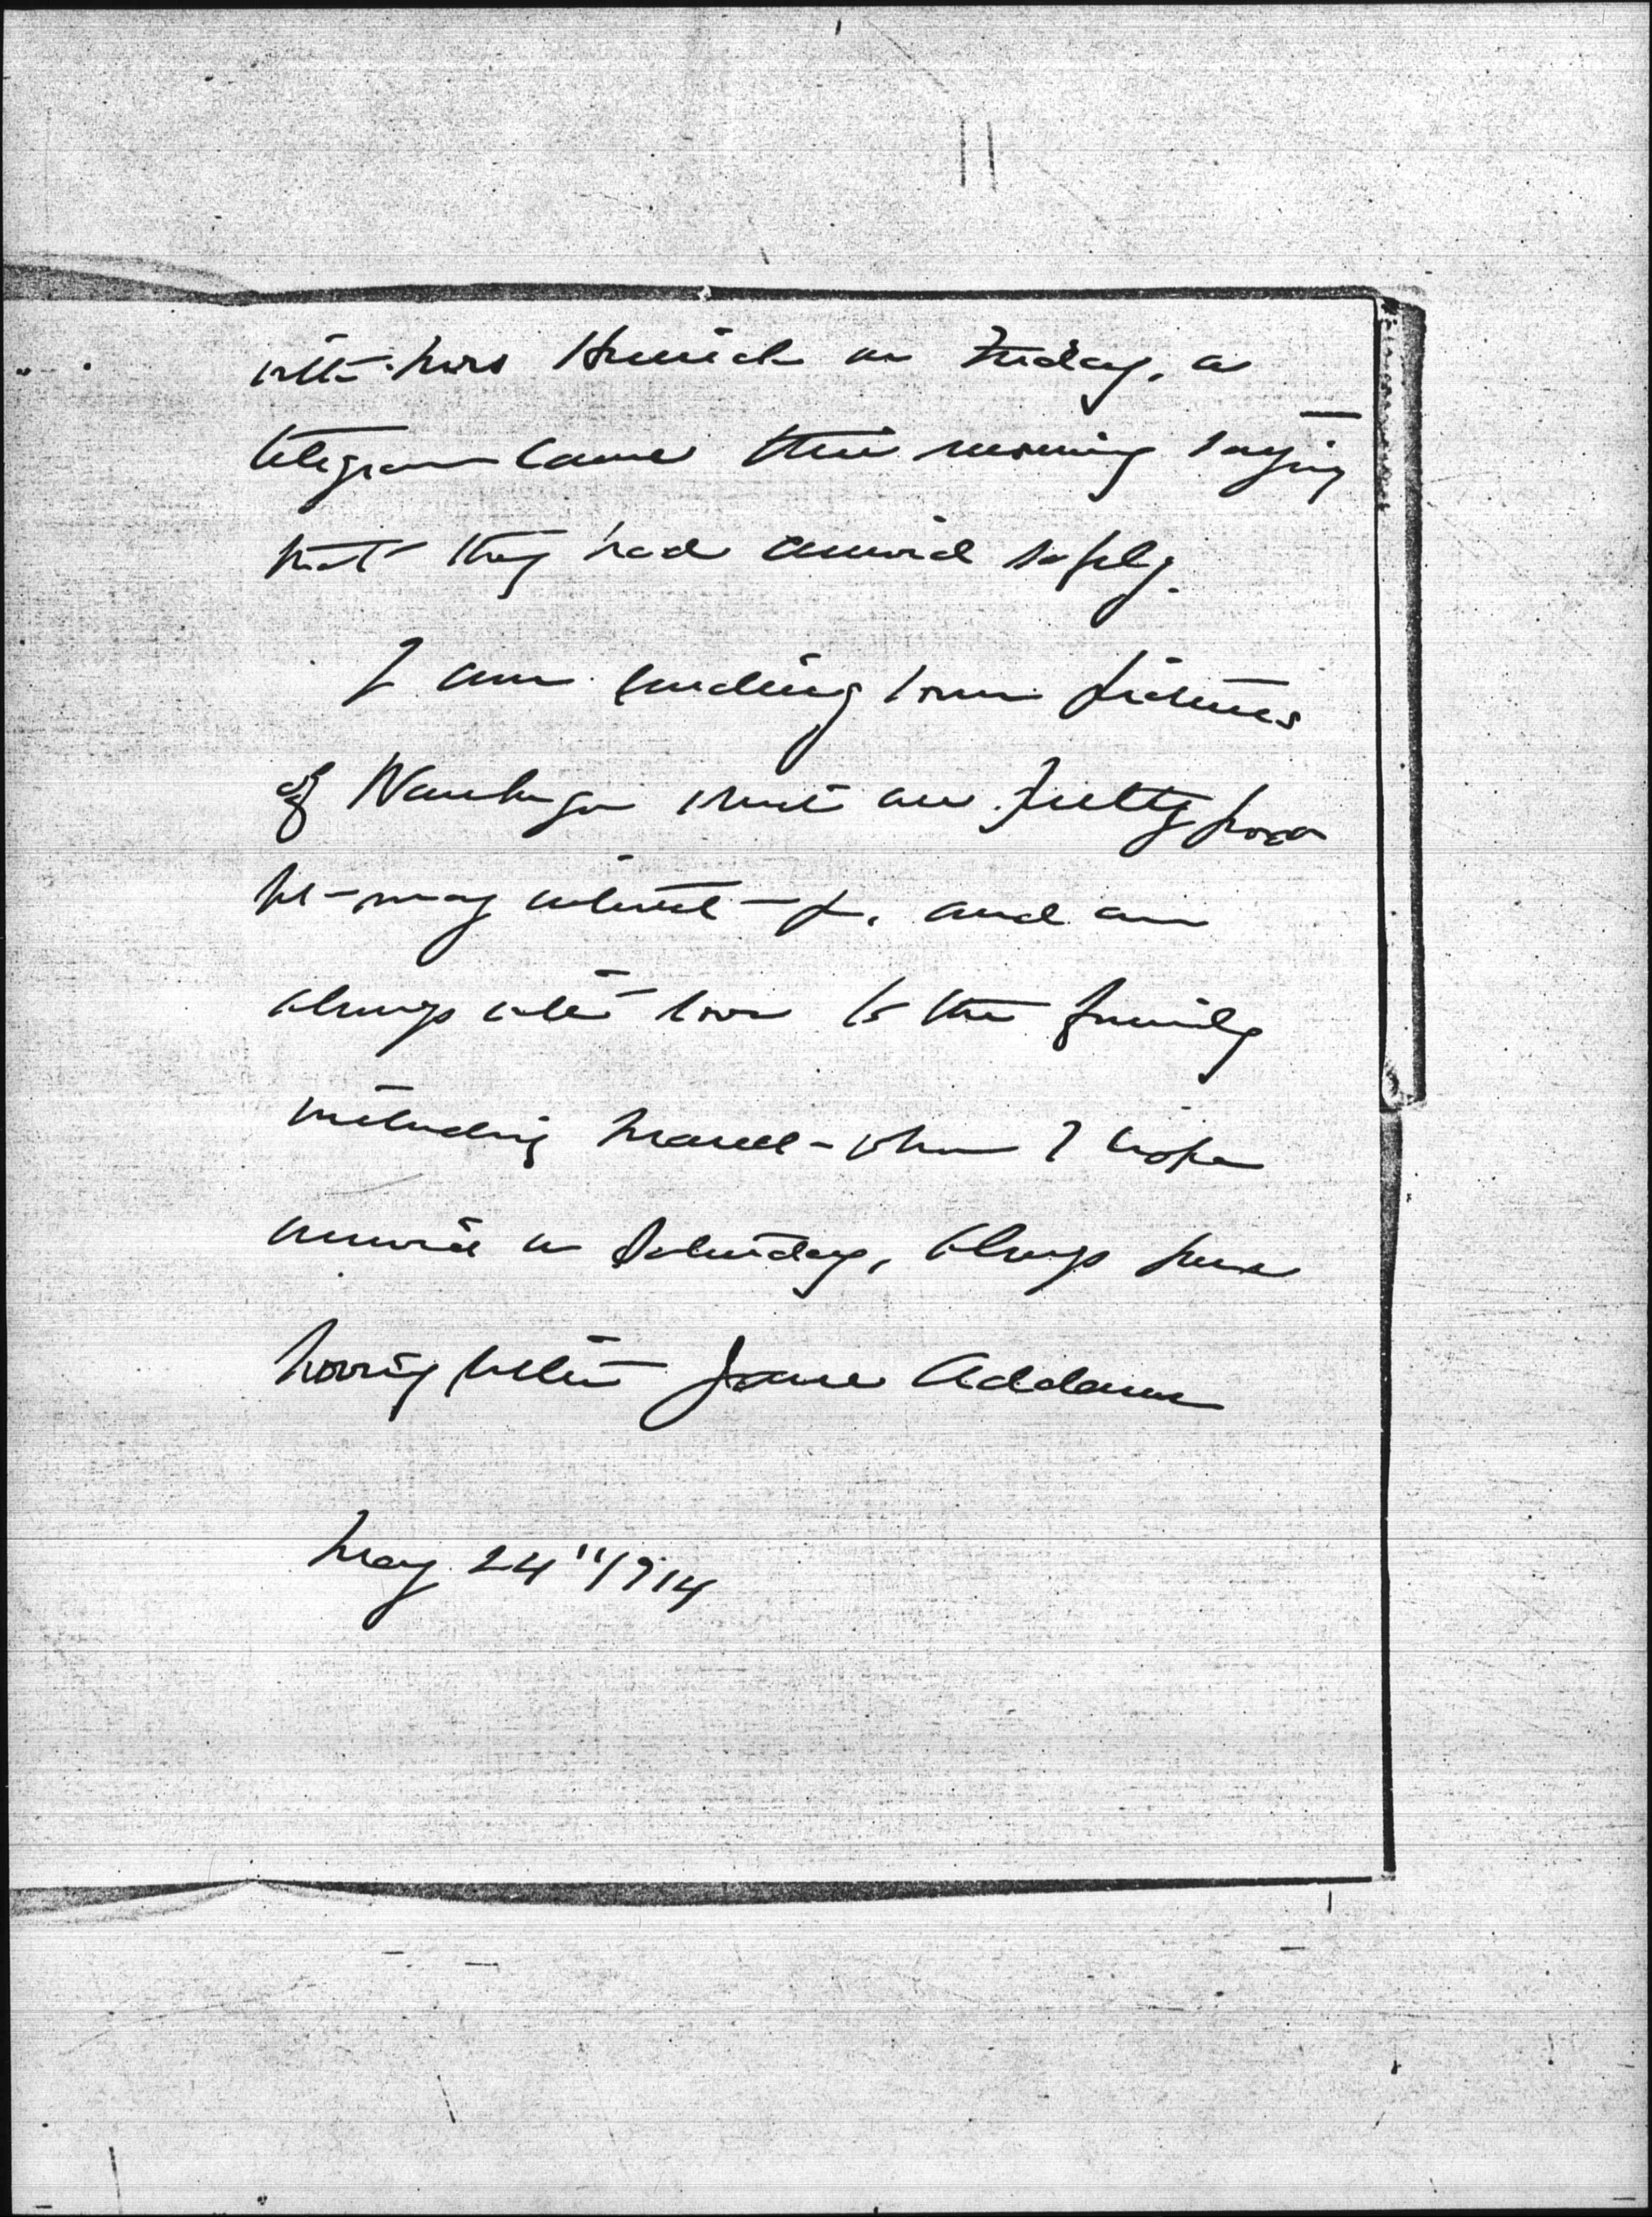 with Mrs on Friday, a
telegram came this morning saying
that they had arrived safely.
I am sending some pictures
of Waukegan which are pretty poor
but may interest you, and am
always with love to the family
including Marcet – whom I hope
arrived on Saturday, always your
loving sister Jane Addams
May 24" 1914